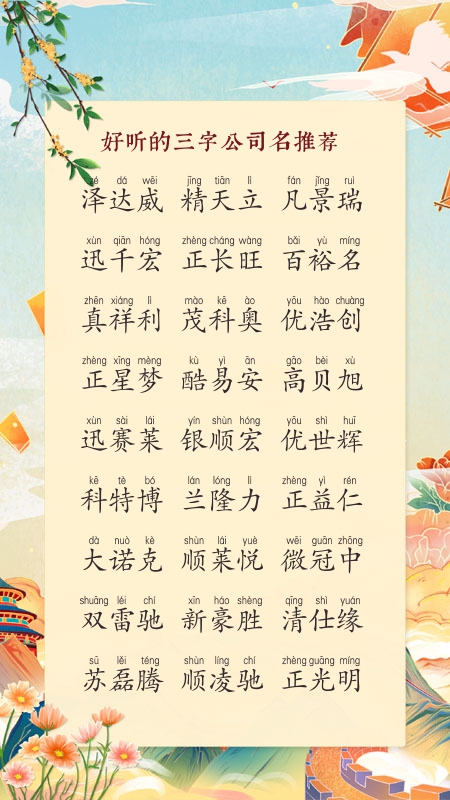 好听的三字公司名推荐
zé dá wēi jīng tiān lì fán jǐng ruì
泽达威 精天立 凡景瑞
xùn qiān hóng zhèng cháng wàng bǎi yù míng
迅千宏 正长旺 百裕名
zhēn xiáng lì mào kē ào yōu hào chuàng
真祥利 茂科奥 优浩创
zhèng xīng mèng kù yì ān gāo bèi xù
正星梦 酷易安 高贝旭
xùn sài lái yín shùn hóng yōu shì huī
迅赛莱 银顺宏 优世辉
kē tè bó lán lóng lì zhèng yì rén
科特博 兰隆力 正益仁
dà nuò kè shùn lái yuè wēi guān zhōng
大诺克 顺莱悦 微冠中
shuāng léi chí xīn háo shèng qīng shì yuán
双雷驰 新豪胜 清仕缘
sū lěi téng shùn líng chí zhèng guāng míng
苏磊腾 顺凌驰 正光明